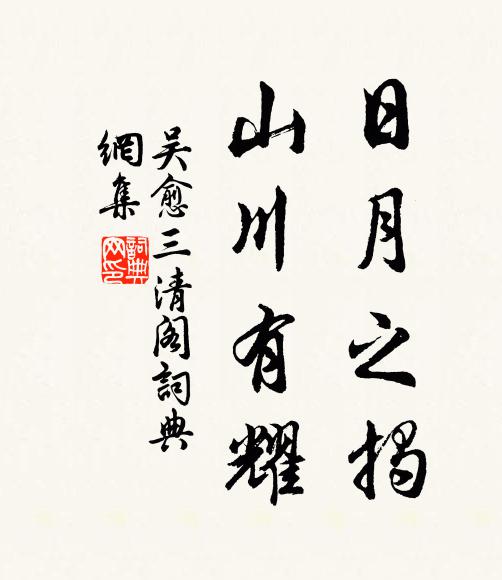 日月之揭
山川有耀
吴愈三清阁詞典
網集
詞典
网印